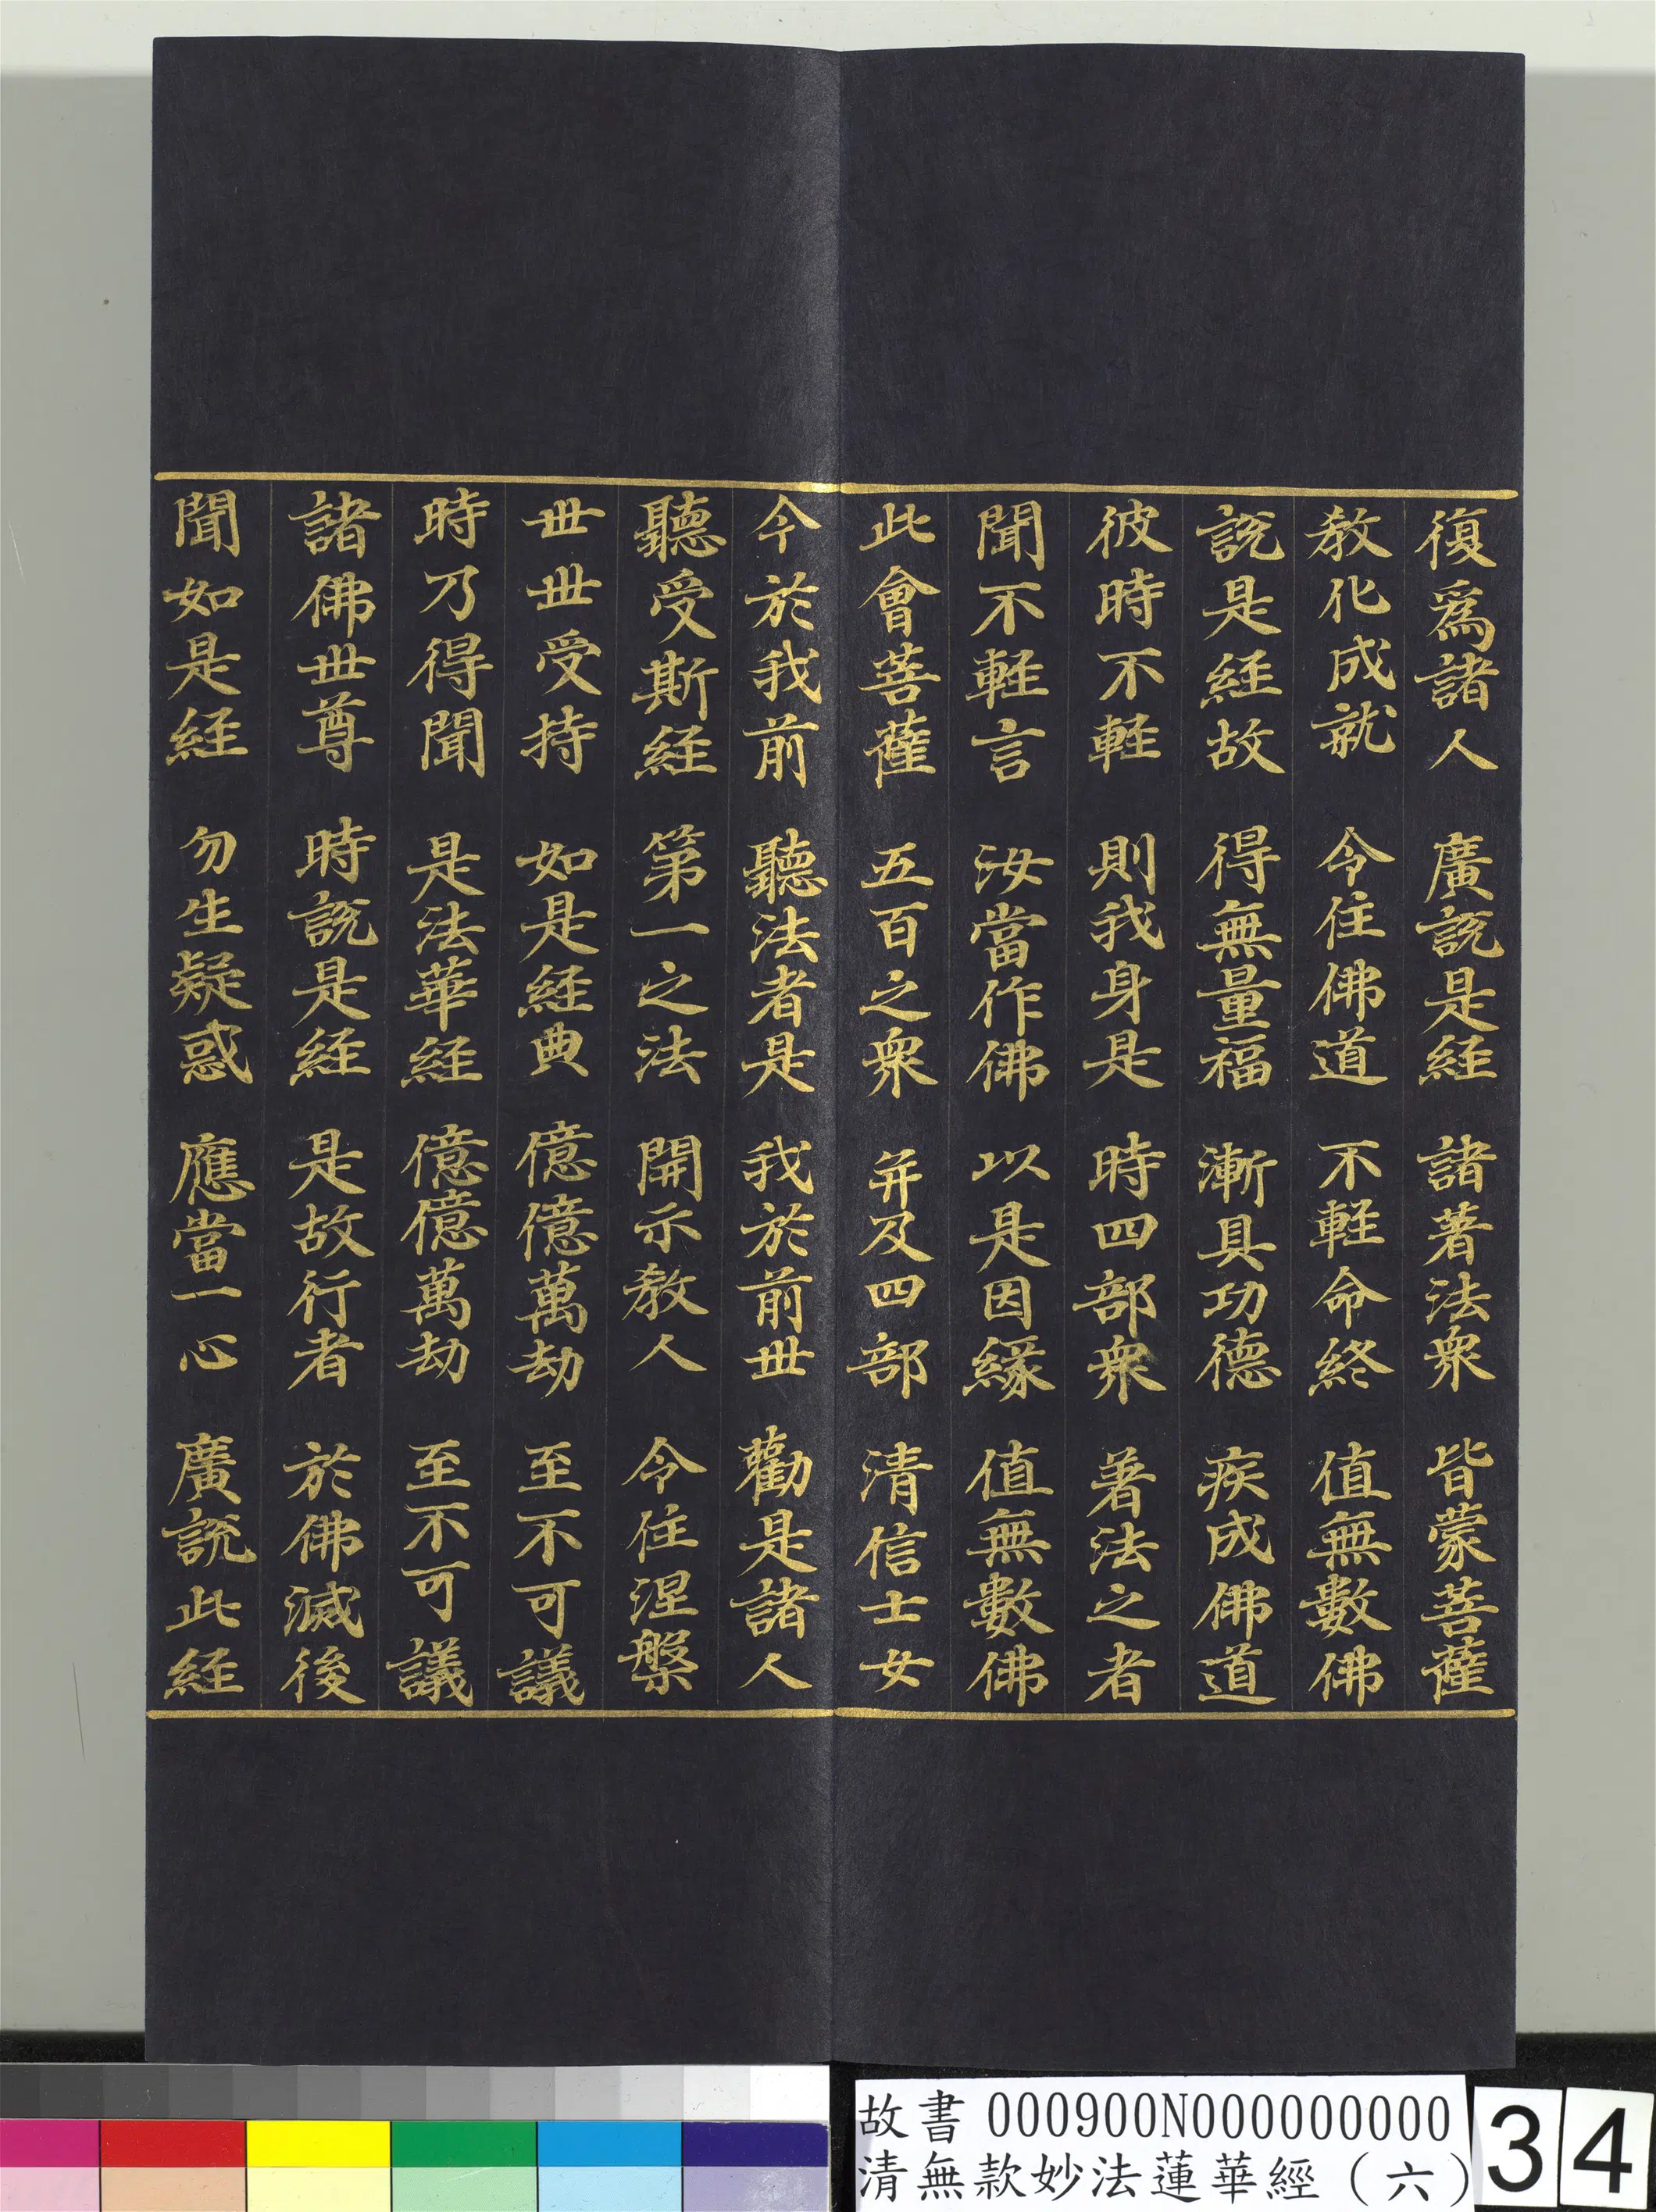 復爲諸人 廣說是經 諸著法衆 皆蒙菩薩
教化成就 令住佛道 不輕命終 值無數佛
說是經故 得無量福 漸具功德 疾成佛道
彼時不輕 則我身是 時四部衆 著法之者
聞不輕言 汝當作佛 以是因緣 值無數佛
此會菩薩 五百之衆 并及四部 清信士女
今於我前 聽法者是 我於前世 勸是諸人
聽受斯經 第一之法 開示教人 令住涅槃
世世受持 如是經典 億億萬劫 至不可議
時乃得聞 是法華經 億億萬劫 至不可議
諸佛世尊 時說是經 是故行者 於佛滅後
聞如是經 勿生疑惑 應當一心 廣說此經
故書 000900N000000000
清無款妙法蓮華經（六）
34